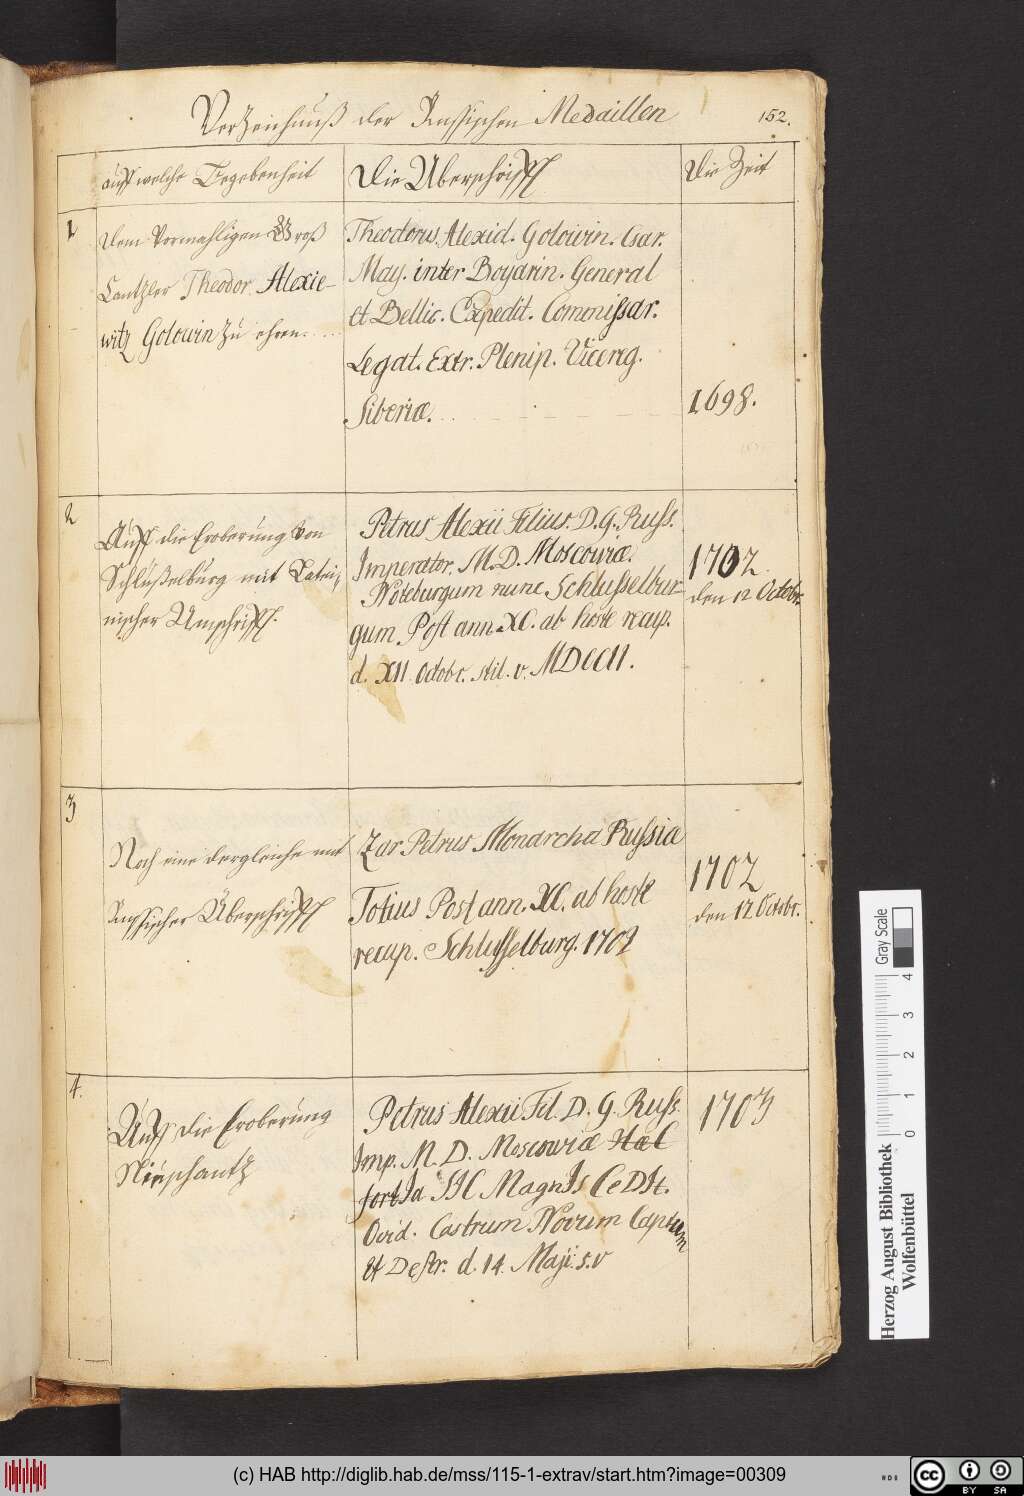 Verzeichnuß der Russischen Medaillen
152.
auff welche Begebenheit
Die Überschrifft
Die Zeit
1
Dem Vormahligen Groß
Cantzler Theodor Alexie-
witz Golowin zu ehren.
Theodorus Alexid. Golowin. Czar.
May. inter Boyarin. General
et Bellic. Expedit. Commissar.
Legat. Extr. Plenip. Vicereg.
Siberiæ.
1698.
2
Auff die Eroberung von
Schlüßelburg mit Latei-
nischer Umschrifft.
Petrus Alexii Filius. D. G. Russ.
Imperator. M. D. Moscoviæ.
Noteburgum nunc Schlusselbur-
gum Post ann. XC. ab hoste recup.
d. XII Octobr. stil. v. MDCCII.
1702.
den 12 Octobr.
3
Noch eine dergleiche mit
Russischer Überschrifft
Zar Petrus Monarcha Russiæ
Totius Post ann. XC. ab hoste
recup. Schlusselburg. 1702
1702
den 12 Octobr.
4.
Auff die Eroberung
Nieschantz
Petrus Alexii Fil. D. G. Russ.
Imp. M. D. Moscoviæ HæC
fortIa SIC MagnIs CeDIt.
Ovid. Castrum Novum Captum
et Destr. d. 14. Maji s. v
1703
Gray Scale
0 1 2 3 4
Herzog August Bibliothek
Wolfenbüttel
(c) HAB http://diglib.hab.de/mss/115-1-extrav/start.htm?image=00309
cc BY SA